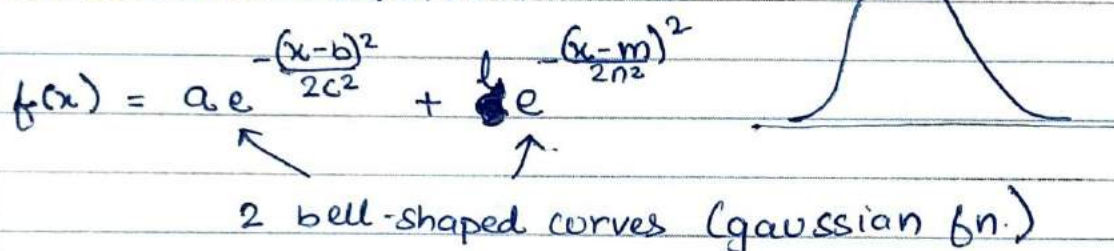 f(x) = a e^{-(x-b)²/2c²} + l e^{-(x-m)²/2n²}
2 bell-shaped curves (gaussian fn.)